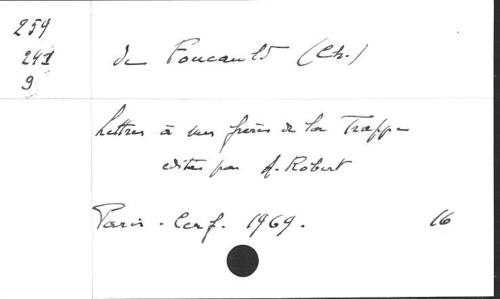 259
241
9
de Foucauld (Ch.)
Lettres à mes frères de la Trappe
editées par A. Robert
Paris - Cerf. 1969. 16